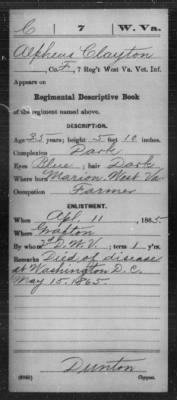 C 7 W. Va.
Alpheus Clayton
, Co. F, 7 Reg't West Va. Vet. Inf.
Appears on
Regimental Descriptive Book
of the regiment named above.
DESCRIPTION.
Age 35 years; height 5 feet 10 inches.
Complexion Dark
Eyes Blue; hair Dark
Where born Marion West Va
Occupation Farmer
ENLISTMENT.
When Apl. 11, 1865.
Where Grafton
By whom ; term 1 y'rs.
Remarks Died of disease
at Washington D.C.
May 15, 1865.
Dunton
Copyist.